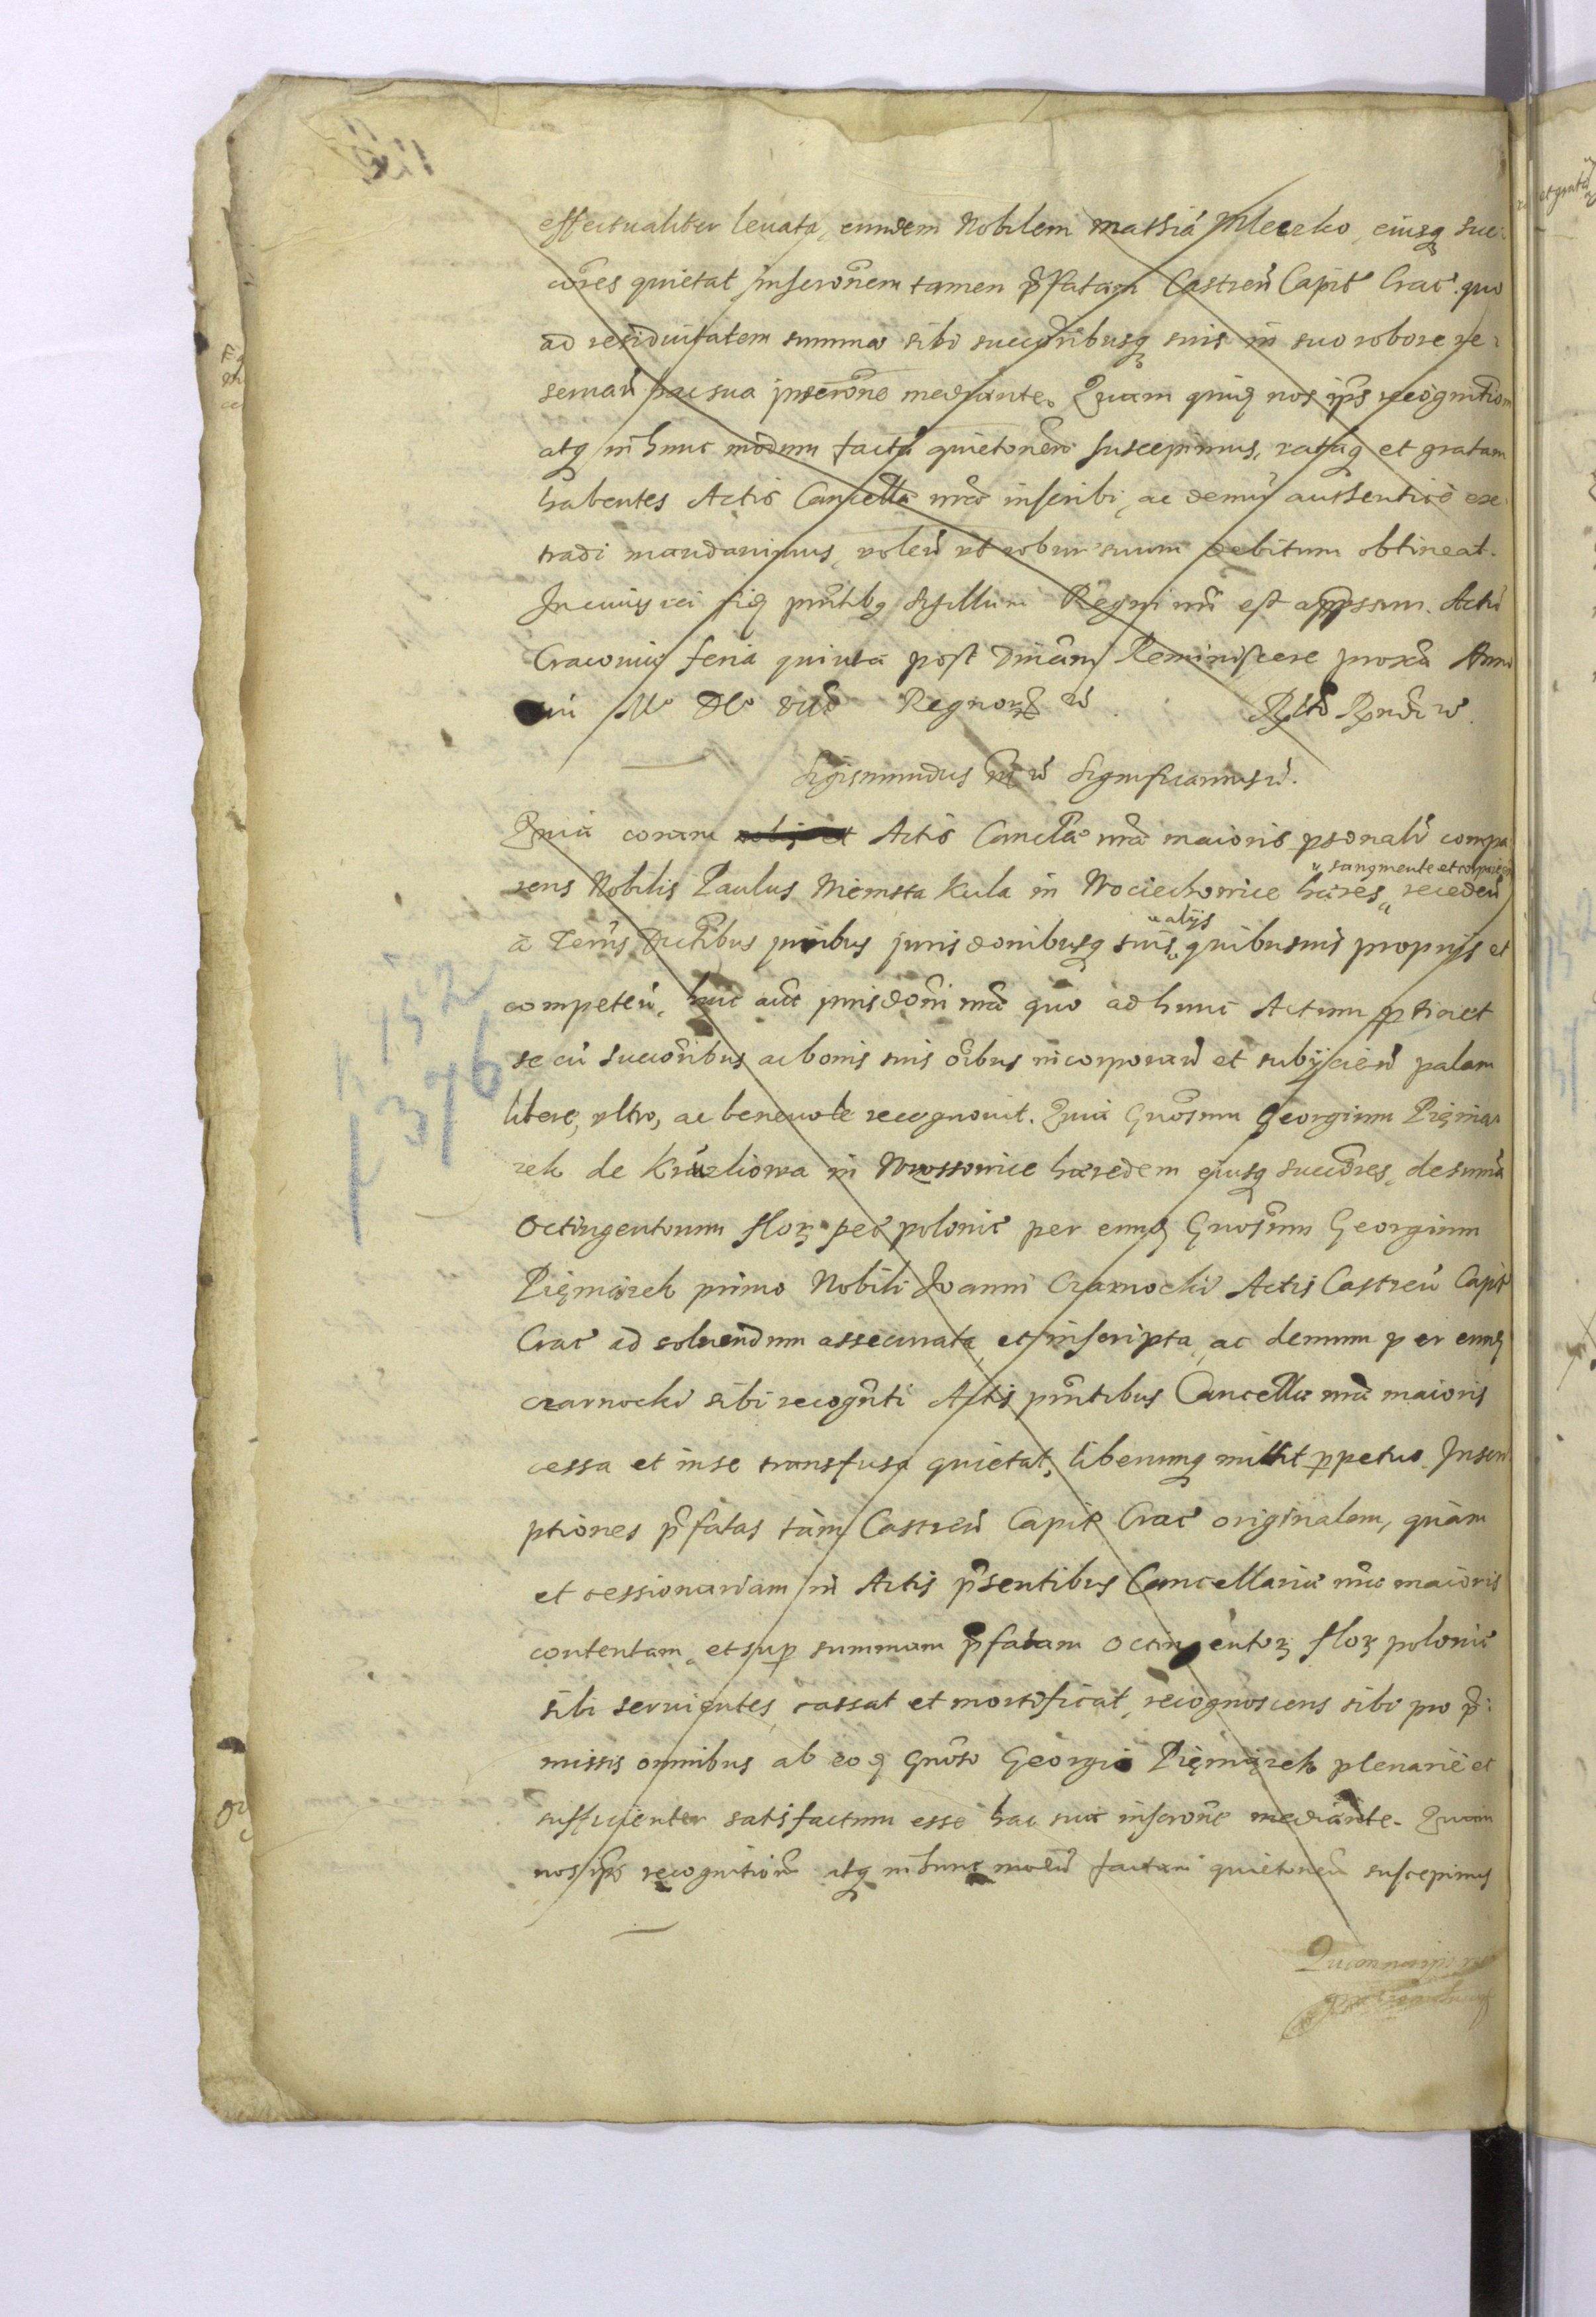 effectualiter leuata, eundem Nobilem Mathiā Mleczko, eiusq suc-
cōres quietat Inscronem tamen p̄fatam Castreñ Capit Crac̄. quo
ad residuitatem summæ sibi succoribusq suis in suo robore re-
seruañ hac sua inscrōne mediante. Quam quid nos ip̄s recognitiōm
atq in hunc modum factā quietonem suscepimus, ratāq et gratam
habentes Actis Cancellæ nr̄æ inscribi, ac demū authenticè ex-
tradi mandauimus, voleñ vt robur suum debitum obtineat.
In cuius rei fid pn̄tibq Sigillum Regni nr̄i est appssum. Actū
Cracouiæ feria quinta post Dnicam Reminiscere proxā Anno
Regnorȝ
Sigismundus Significamus
Quia coram Actis Cancellæ nr̄æ maioris psonalr̄ compa-
rens Nobilis Paulus Niemsta Kula in Wociechowice hæres recedeñ
sanq mente et corpore
à Terris Districtibus juribus jurisdonibusq suis quibusuis proprijs et
alijs
competeñ, huic aūt jurisdoni nr̄æ quo ad hunc Actum ptinet
se cū succoribus ac bonis suis oībus incorporañ et subijcieñ palam
libere, vltro, ac beneuole recognouit. Quia Gnōsum Georgium Pięniąz-
zek de Krużlowa in Wrossowice hæredem eiusq succores, de summa
Octingentorum florȝ pec polonic per eund Gnosum Georgium
Pięniązek primo Nobili Joanni Czarnocki Actis Castreñ Capit
Crac̄ ad soluendum assecurata et inscripta, ac demum per eund
czarnocki sibi recognti Actis pn̄tibus Cancellæ nr̄æ maioris
cessa et in se transfusa quietat, liberumq mittit ppetuo. Inscri-
ptiones p̄fatas tàm Castreñ Capit Crac̄ originalem, quàm
et cessionariam in Actis p̄sentibus Cancellariæ nr̄æ maioris
contentam, et sup summam p̄fatam octingentorȝ florȝ polonic
sibi seruientes, cassat et mortificat, recognoscens sibi pro p̄-
missis omnibus ab eod Gnōso Georgio Pięniązek plenariè et
sufficienter satisfactum esse hac sua inscrone mediante. Quam
nos ip̄s recognitiōm atq in hunc modū factam quietonem suscepimus
Quam nos ip̄s
152
376